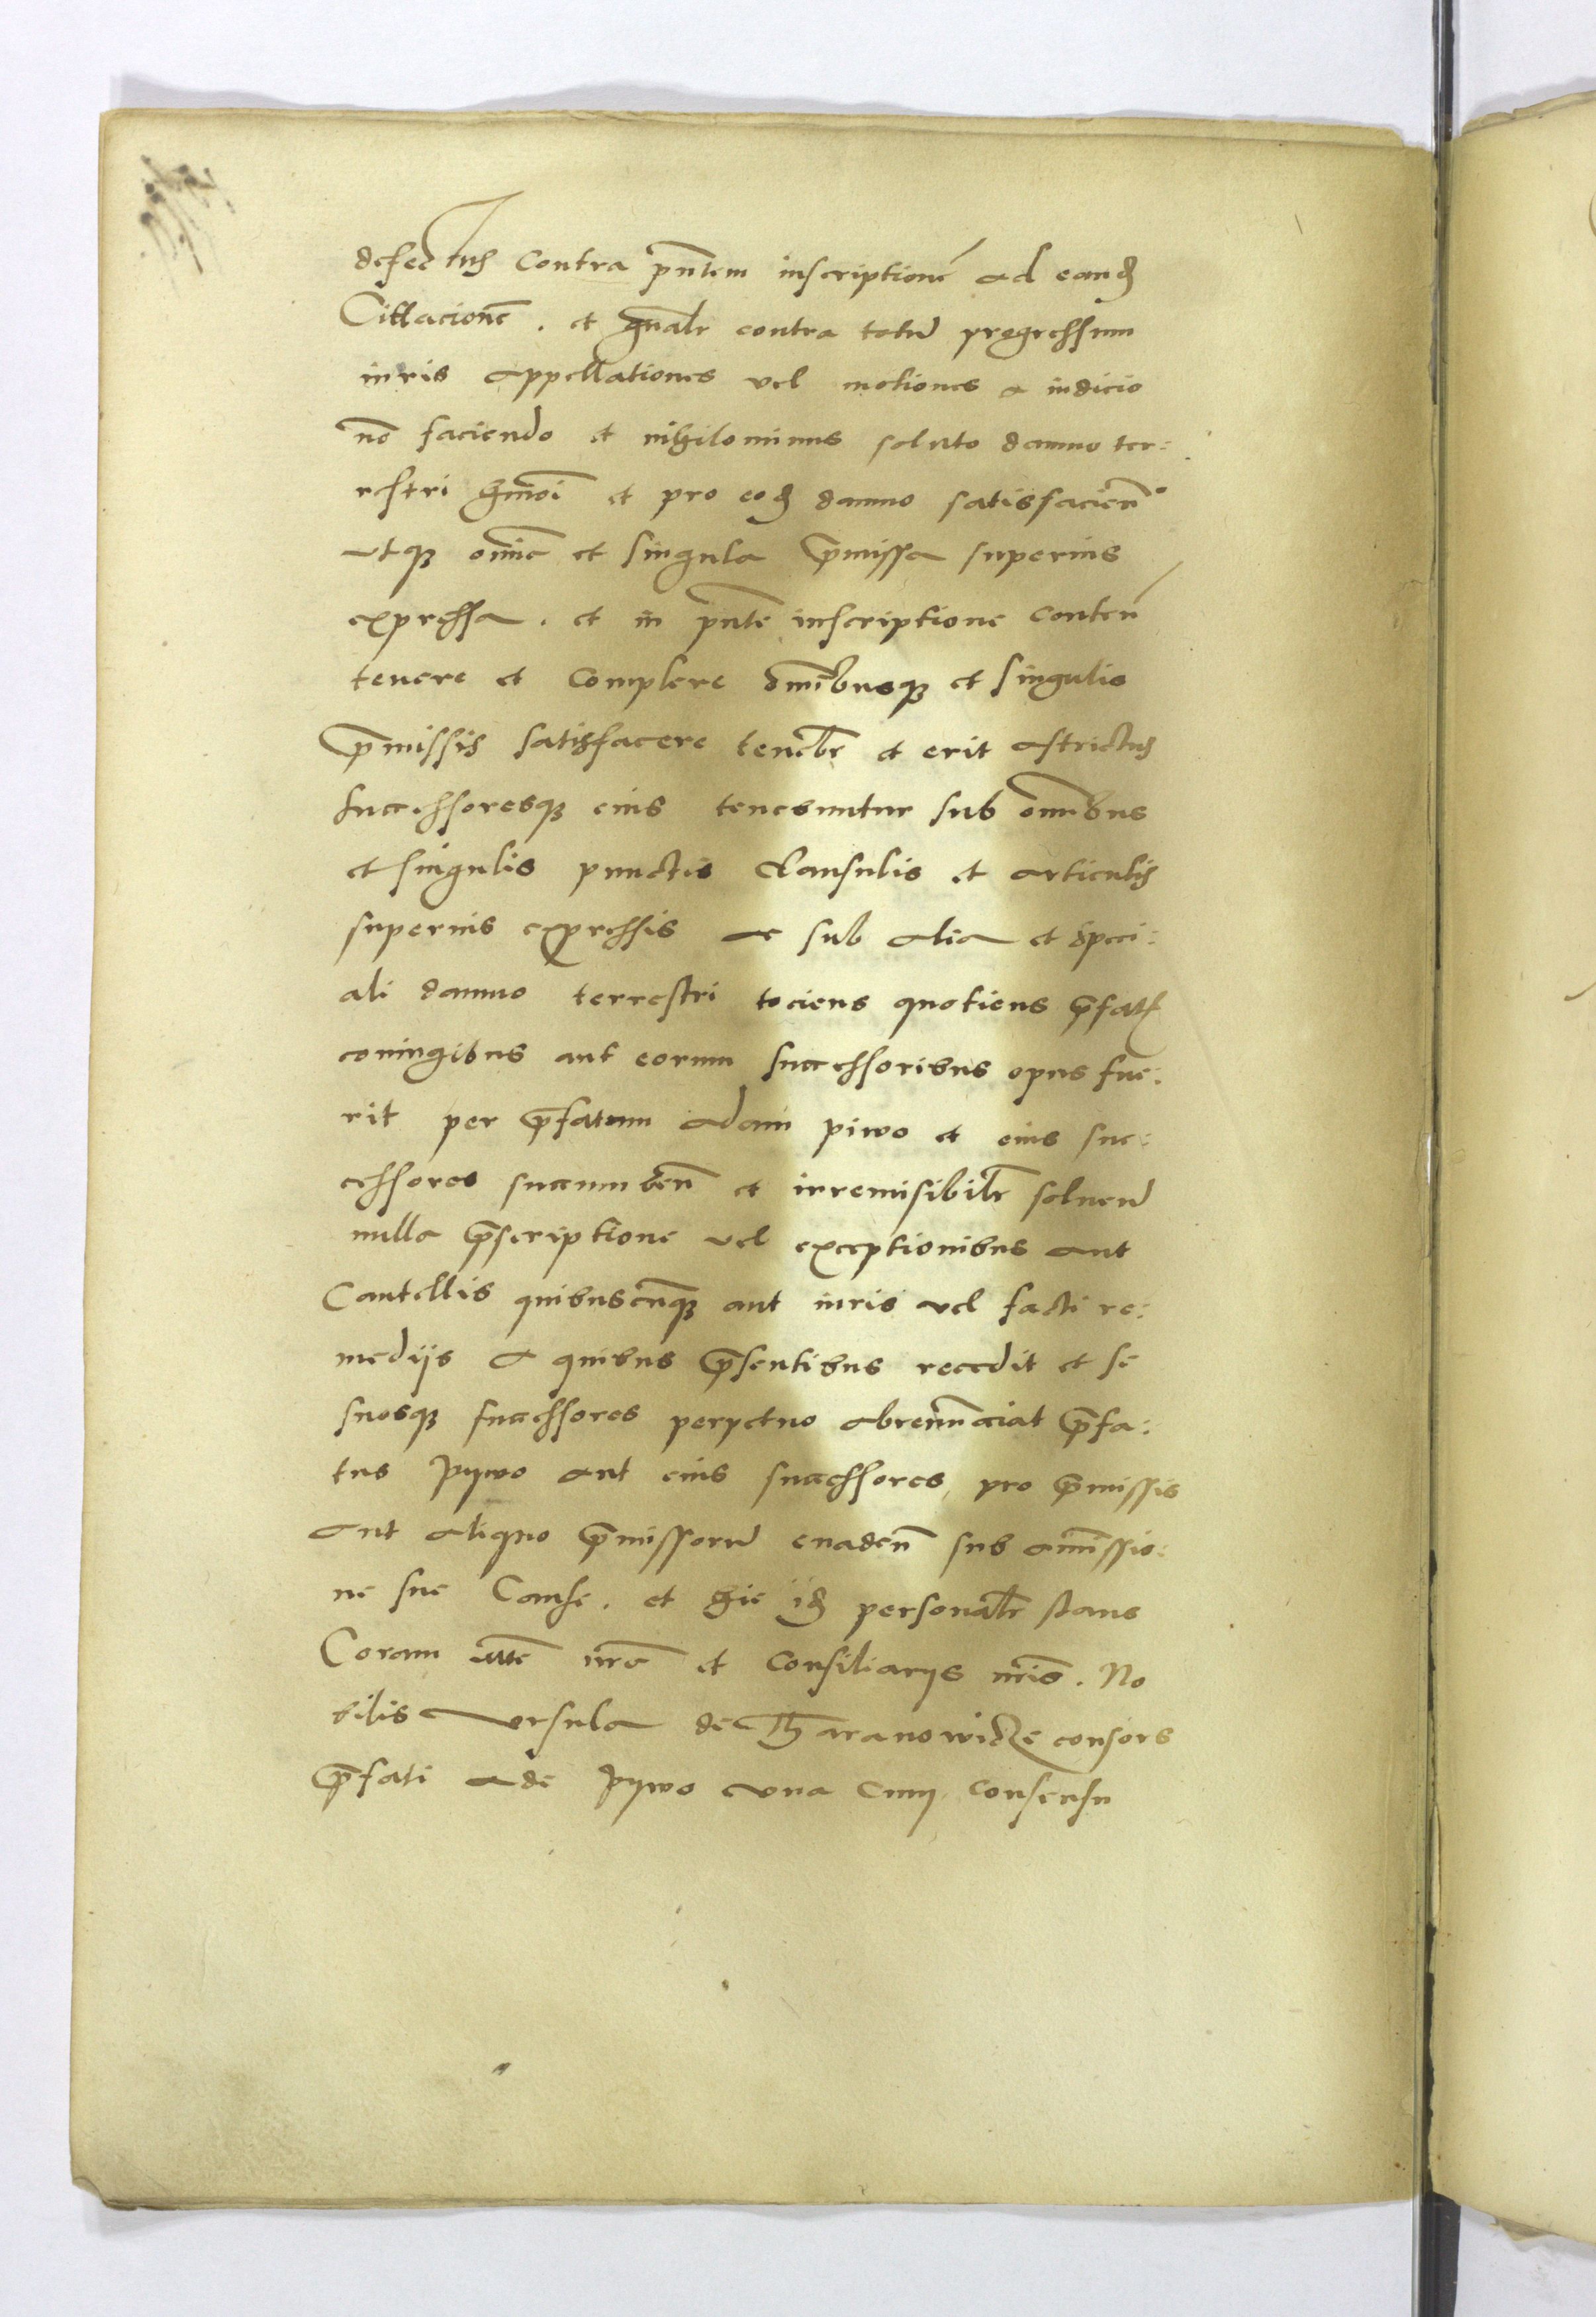 defectus contra pñtem inscriptionẽ ad eand
Cittacionẽ. et gñalr contra totũ progressum
iuris appellationes vel motiones a iudicio
nõ faciendo et nihilominus soluto damno ter:
restri hmõi et pro eod damno satisfacien
utqȝ omĩa et singula p̃missa superius
expressa. et in pñte inscriptione conten
tenere et complere omĩbusqȝ et singulis
p̃missis satisfacere tenebr et erit astrictus
successoresqȝ eius tenebuntur sub omĩbus
et singulis punctis clausulis et articulis
superius expressis ac sub alia et speci:
ali damno terrestri tociens quotiens p̃fat
coniugibus aut eorum successoribus opus fue:
rit per p̃fatum Adam piwo et eius suc:
cessores succumben et irremisibilr soluen
nulla p̃scriptione vel exceptionibus aut
Cautellis quibuscunqȝ aut iuris vel facti re:
medijs a quibus p̃sentibus recedit et se
suosqȝ successores perpetuo abrenũcciat p̃fa:
tus pywo aut eius successores pro p̃missis
aut aliquo p̃missorũ euaden sub amĩssio:
ne sue Cause. et hic id personalr stans
Coram utte nr̃e et consiliarijs nr̃is. No
bilis Vrsula de Tharanowicze consors
p̃fati Ade pywo vna cum consensu